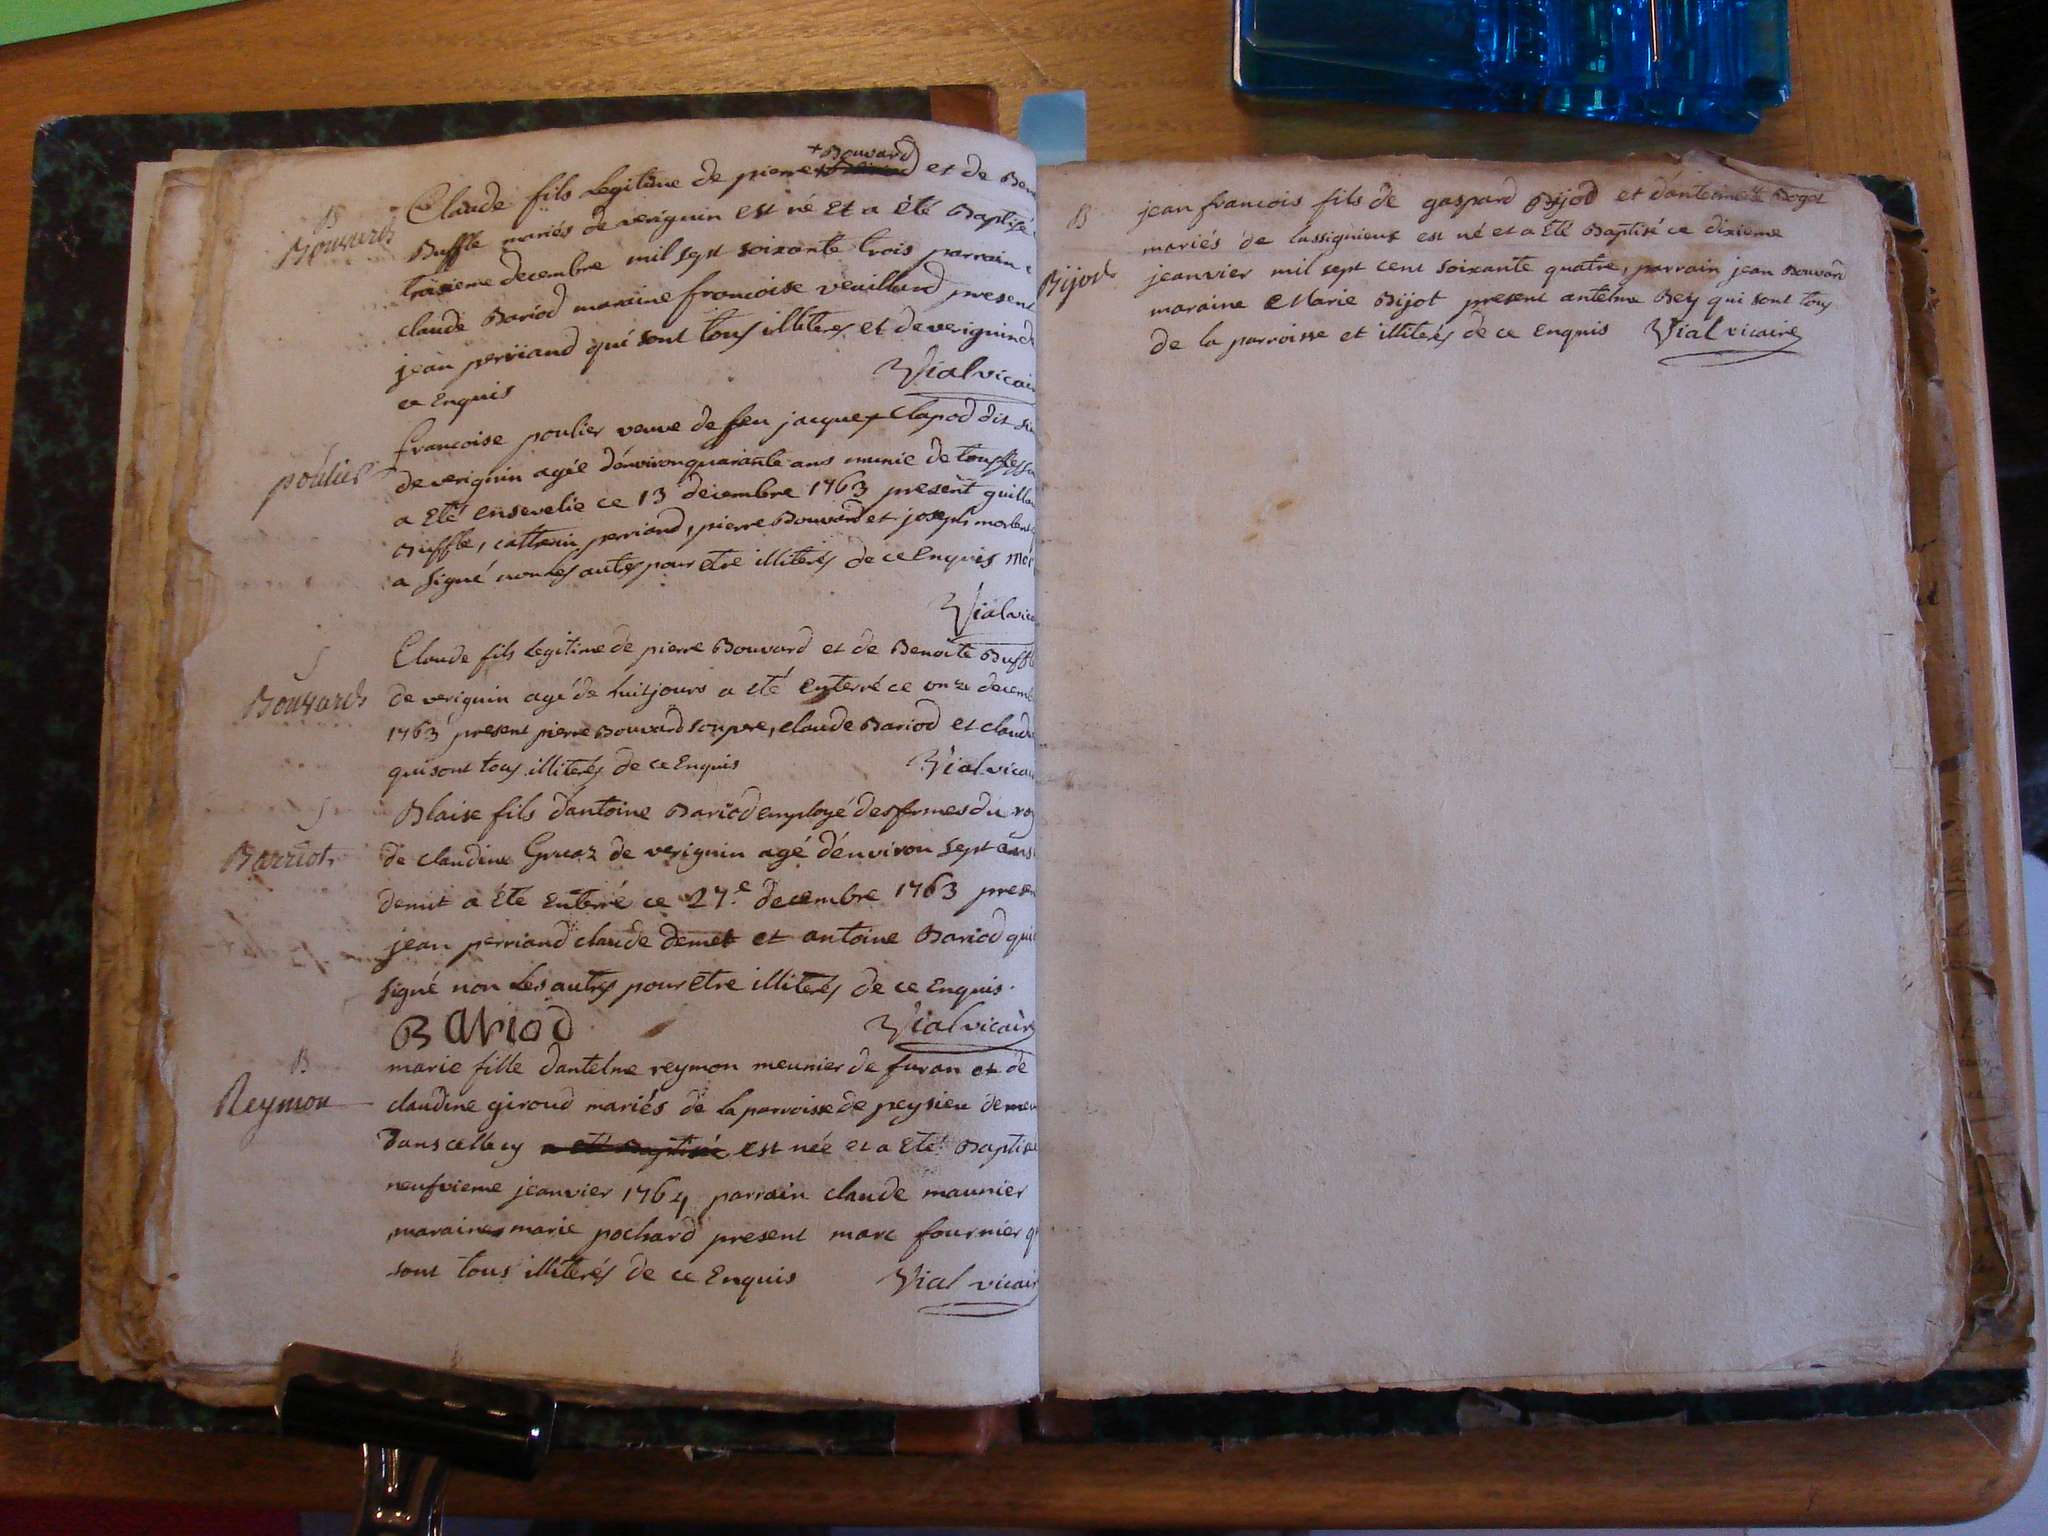 B
Bouvard
+ Bouvard
Claude fils Legitime de pierre et de Ben
Buffle mariés de verignin est né et a été Baptisé
troisieme decembre mil sept soixante trois parrain
claude Bariod maraine francoise veuillard present
jean perriand qui sont tous illiterés et de verignin de
ce Enquis
Vial vicai
poulier
francoise poulier veuve de feu jacques Clapod dit
de verignin agée d'environ quarante ans munie de tous
a Eté ensevelie ce 13 decembre 1763 present guillau
Buffle, catherin perriand, pierre Bouvard et joseph
a signé non les autres pour etre illiterés de ce Enquis
Vial vica
S
Bouvard
Claude fils Legitime de pierre Bouvard et de Benoite Buffle
de verignin agé de huit jours a eté enterré ce onze decemb
1763 present pierre Bouvard son pere, claude Bariod et claude
qui sont tous illiterés de ce Enquis
Vial vicai
S
Barriot
Blaise fils d'antoine Bariod employé des fermes du roy
de claudine Gruaz de verignin agé d'environ sept ans
demit a Eté Enterré ce 27.e decembre 1763 presen
jean perriand claude demet et antoine Bariod qui
signé non Les autres pour Etre illiterés de ce Enquis.
Bariod
Vial vicaire
B
Reymon
marie fille d'antelme reymon meunier de furan et de
claudine giroud mariés de la parroisse de peysieu demeu
dans celle cy a eté Baptisée est née et a Eté Baptisé
neufvieme jeanvier 1764 parrain claude maunier
maraine marie pochard present marc fournier q
sont tous illiterés de ce Enquis
Vial vicair
B
Bijot
jean francois fils de gaspard Bijod et d'antelmette Boget
mariés de lassignieux est né et a Eté Baptisé ce dixieme
jeanvier mil sept cent soixante quatre, parrain jean Bouvard
maraine Marie Bijot present antelme Bey qui sont tous
de la parroisse et illiterés de ce Enquis Vial vicaire